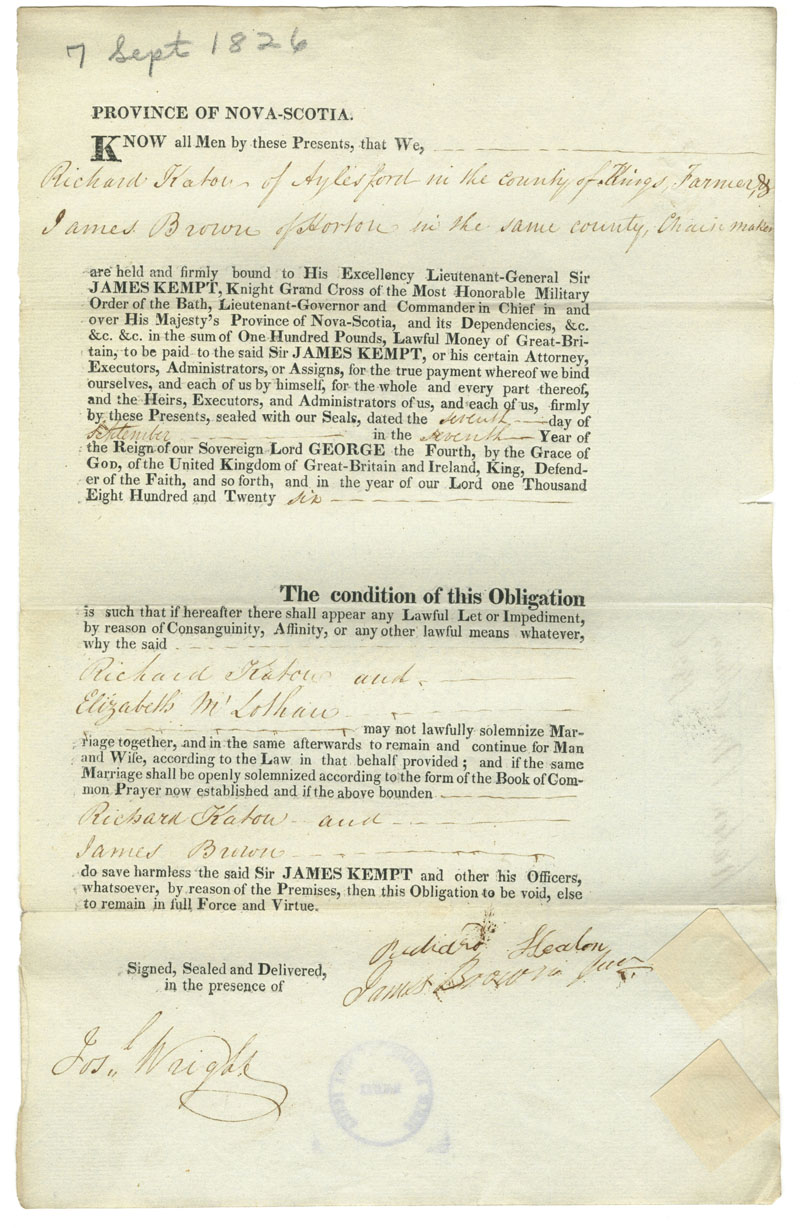 7 Sept 1826
PROVINCE OF NOVA-SCOTIA.
KNOW all Men by these Presents, that We,
Richard Katon of Aylesford in the county of Kings, Farmer, &
James Brown of Horton in the same county, Chair maker
are held and firmly bound to His Excellency Lieutenant-General Sir
JAMES KEMPT, Knight Grand Cross of the Most Honorable Military
Order of the Bath, Lieutenant-Governor and Commander in Chief in and
over His Majesty's Province of Nova-Scotia, and its Dependencies, &c.
&c. &c. in the sum of One Hundred Pounds, Lawful Money of Great-Bri-
tain, to be paid to the said Sir JAMES KEMPT, or his certain Attorney,
Executors, Administrators, or Assigns, for the true payment whereof we bind
ourselves, and each of us by himself, for the whole and every part thereof,
and the Heirs, Executors, and Administrators of us, and each of us, firmly
by these Presents, sealed with our Seals, dated the seventh day of
September in the seventh Year of
the Reign of our Sovereign Lord GEORGE the Fourth, by the Grace of
GOD, of the United Kingdom of Great-Britain and Ireland, King, Defend-
er of the Faith, and so forth, and in the year of our Lord one Thousand
Eight Hundred and Twenty six
The condition of this Obligation
is such that if hereafter there shall appear any Lawful Let or Impediment,
by reason of Consanguinity, Affinity, or any other lawful means whatever,
why the said
Richard Katon and
Elizabeth Mc Lothan
may not lawfully solemnize Mar-
riage together, and in the same afterwards to remain and continue for Man
and Wife, according to the Law in that behalf provided; and if the same
Marriage shall be openly solemnized according to the form of the Book of Com-
mon Prayer now established and if the above bounden
Richard Katon and
James Brown
do save harmless the said Sir JAMES KEMPT and other his Officers,
whatsoever, by reason of the Premises, then this Obligation to be void, else
to remain in full Force and Virtue.
Signed, Sealed and Delivered,
in the presence of
Richard Heaton
James Brown Junr.
Josl. Wright